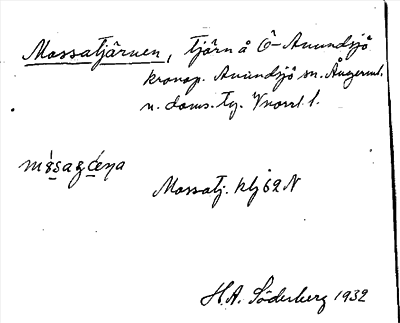 Mossatjärnen, tjärn å Ö-Anundsjö
kronop. Anundsjö sn. Ångerml.
n. doms. tg. Vnorrl. l.
Mossatj. klj 62 N
H.A. Söderberg 1932